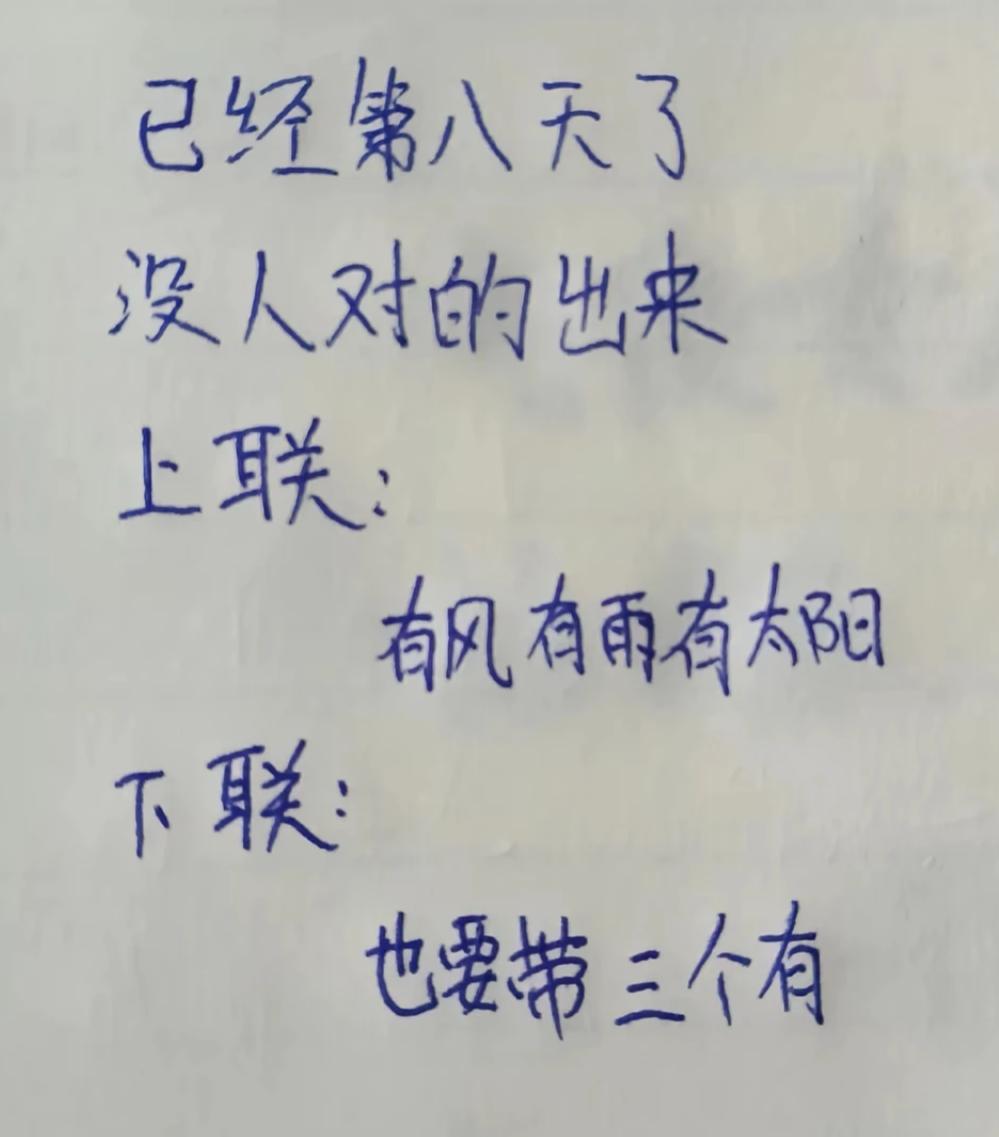 已经第八天了
没人对的出来
上联:
有风有雨有太阳
下联:
也要带三个有